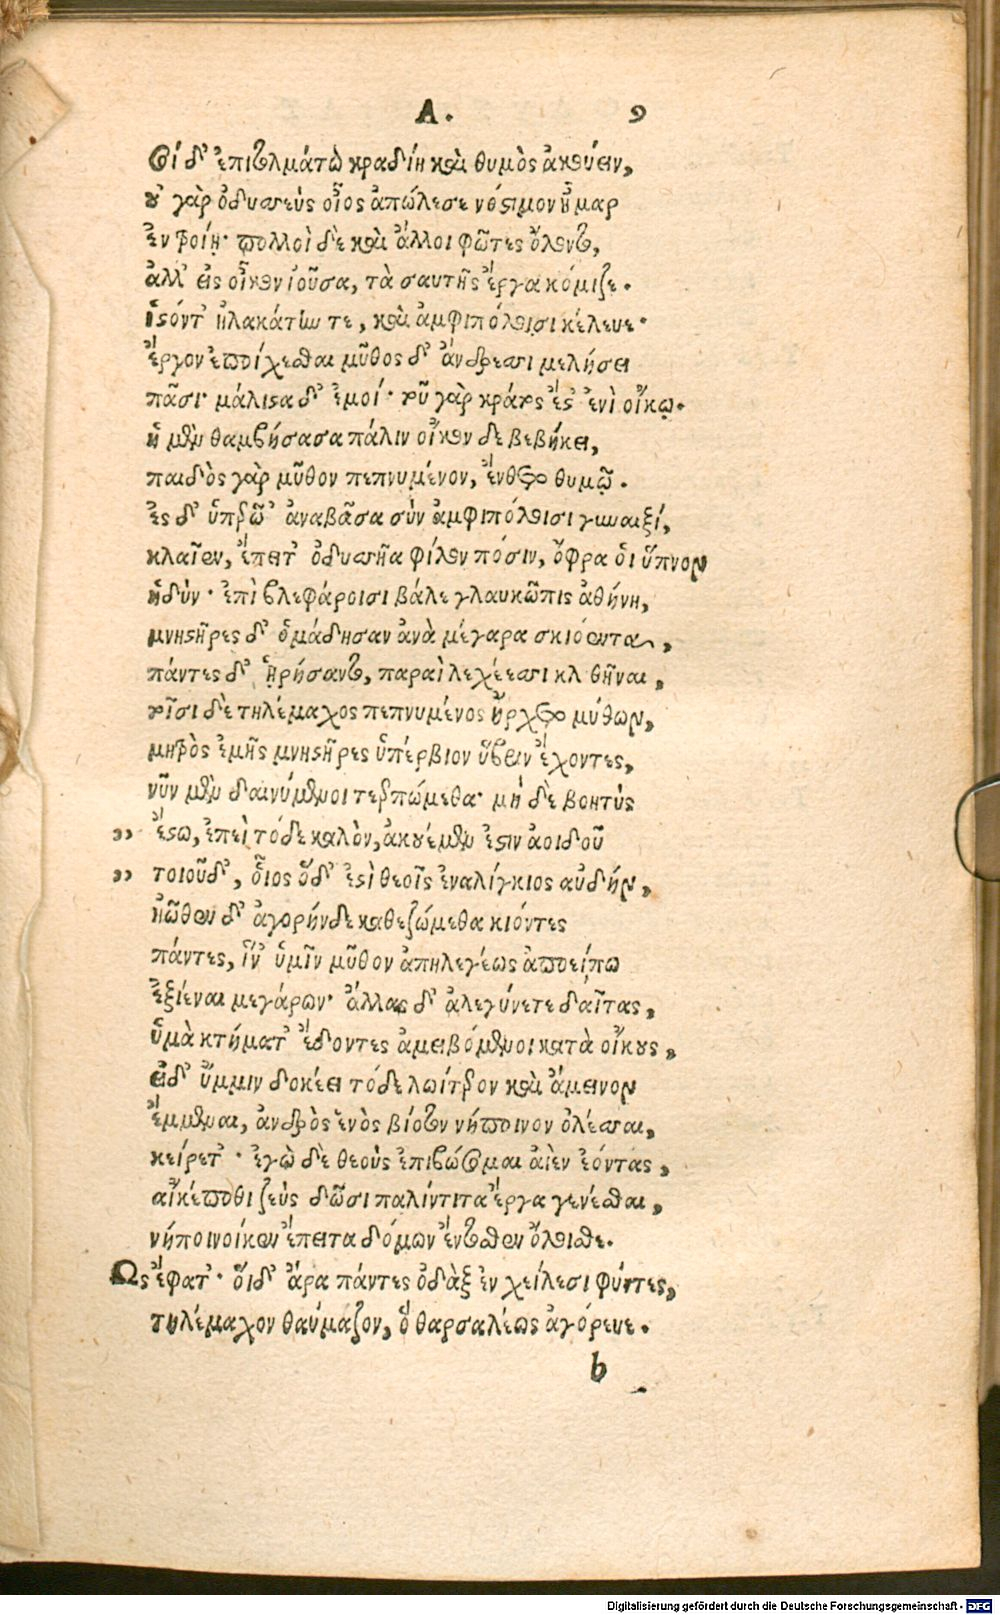 Α. 9
Σοί δ' ἐπιτολμάτω κραδίη καὶ θυμὸς ἀκούειν,
οὐ γὰρ ὀδυσσεὺς οἶος ἀπώλεσε νόστιμον ἦμαρ
ἐν τροίῃ· πολλοὶ δὲ καὶ ἄλλοι φῶτες ὄλοντο,
ἀλλ' εἰς οἶκον ἰοῦσα, τὰ σαυτῆς ἔργα κόμιζε.
ἱστόντ' ἠλακάτην τε, καὶ ἀμφιπόλοισι κέλευε·
ἔργον ἐποίχεσθαι μῦθος δ' ἄνδρεσσι μελήσει
πᾶσι· μάλιστα δ' ἐμοί· τοῦ γὰρ κράτος ἔστ' ἐνὶ οἴκῳ.
ἡ μὲν θαμβήσασα πάλιν οἶκον δε βεβήκει,
παιδὸς γὰρ μῦθον πεπνυμένον, ἔνθετο θυμῷ.
ἐς δ' ὑπερῶ' ἀναβᾶσα σὺν ἀμφιπόλοισι γυναιξί,
κλαῖεν, ἔπειτ' ὀδυσσῆα φίλον πόσιν, ὄφρα οἱ ὕπνον
ἡδύν· ἐπὶ βλεφάροισι βάλε γλαυκῶπις ἀθήνη,
μνηστῆρες δ' ὁμάδησαν ἀνὰ μέγαρα σκιόεντα,
πάντες δ' ἠρήσαντο, παραὶ λεχέεσσι κλιθῆναι,
τοῖσι δὲ τηλέμαχος πεπνυμένος ἤρχετο μύθων,
μητρὸς ἐμῆς μνηστῆρες ὑπέρβιον ὕβριν ἔχοντες,
νῦν μὲν δαινύμενοι τερπώμεθα· μὴ δὲ βοητὺς
,, ἔστω, ἐπεὶ τόδε καλὸν, ἀκουέμεν ἐστιν ἀοιδοῦ
,, τοιοῦδ', οἷος ὅδ' ἐστὶ θεοῖς ἐναλίγκιος αὐδήν,
ἠῶθεν δ' ἀγορήνδε καθεζώμεθα κιόντες
πάντες, ἵν' ὑμῖν μῦθον ἀπηλεγέως ἀποείπω
ἐξιέναι μεγάρων· ἄλλας δ' ἀλεγύνετε δαῖτας,
ὑμὰ κτήματ' ἔδοντες ἀμειβόμενοι κατὰ οἴκους,
εἰδ' ὔμμιν δοκέει τόδε λωίτερον καὶ ἄμεινον
ἔμμεναι, ἀνδρὸς ἑνὸς βίοτον νήποινον ὀλέσσαι,
κείρετ'· ἐγὼ δὲ θεοὺς ἐπιβώσομαι αἰὲν ἐόντας,
αἴκέ ποθι ζεὺς δῶσι παλίντιτα ἔργα γενέσθαι,
νήποινοίκεν ἔπειτα δόμων ἔντοσθεν ὄλοισθε.
Ως ἔφατ'· οἵδ' ἄρα πάντες ὀδὰξ ἐν χείλεσι φύντες,
τηλέμαχον θαύμαζον, ὃ θαρσαλέως ἀγόρευε.
b
Digitalisierung gefördert durch die Deutsche Forschungsgemeinschaft - DFG